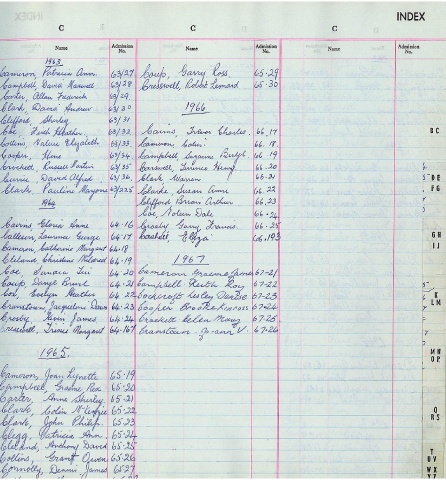 INDEX
C
C
C
Name
Admission No.
Name
Admission No.
Name
Admission No.
1963
Cameron, Patricia Ann. 63/27
Campbell, David Maxwell 63/28
Carter, Allan Frederick 63/29
Clark, David Andrew 63/30
Clifford, Shirley 63/31
Coe, Heather 63/32
Collins, Valerie Elizabeth 63/33
Cooper, 63/34
Crockett, Russell 63/35
Currie, David Alfred 63/36
Clark, Pauline Margorie 63/225
1964
Cairns, Gloria Anne 64-16
George 64-17
Cameron, Catherine Margaret 64-18
Cleland, Christine Mildred 64-19
Coe, Sandra 64-20
Coup, Daryl Bruce 64-21
Cox, Evelyn Heather 64-22
Cranstown, Jacqueline Dawn 64-23
Crosby, Kevin James 64-24
Cresswell, Margaret 64-167
1965.
Cameron, Joan Lynette 65-19
Campbell, Graeme Rex 65-20
Carter, Anne Shirley 65-21
Clark, Colin 65-22
Clark, John Philip. 65-23
Clegg, Patricia Ann. 65-24
Cleland, Anthony David 65-25
Collins, Grant Owen 65-26
Connolly, Dennis James 65-27
Coup, Garry Ross 65-29
Cresswell, Robert Leonard 65-30
1966
Cairns, Trevor Charles. 66.17
Cameron, Colin. 66.18
Campbell, Beryl 66.19
Henry 66.20
Clark, Warren 66.21
Clarke, Susan Anne 66.22
Clifford, Brian Arthur 66.23
Coe, Dale 66.24
Crosby, Gary Francis. 66.25
66.193
1967
Cameron, Graeme James 67-21
Campbell, Keith Roy 67-22
Cockcroft, Lesley 67-23
Cooper, 67-24
Crockett, Helen Mary 67-25
V. 67-26
BC
DE
FG
GH
IJ
K
LM
MN
OP
RS
T
UV
WX
YZ